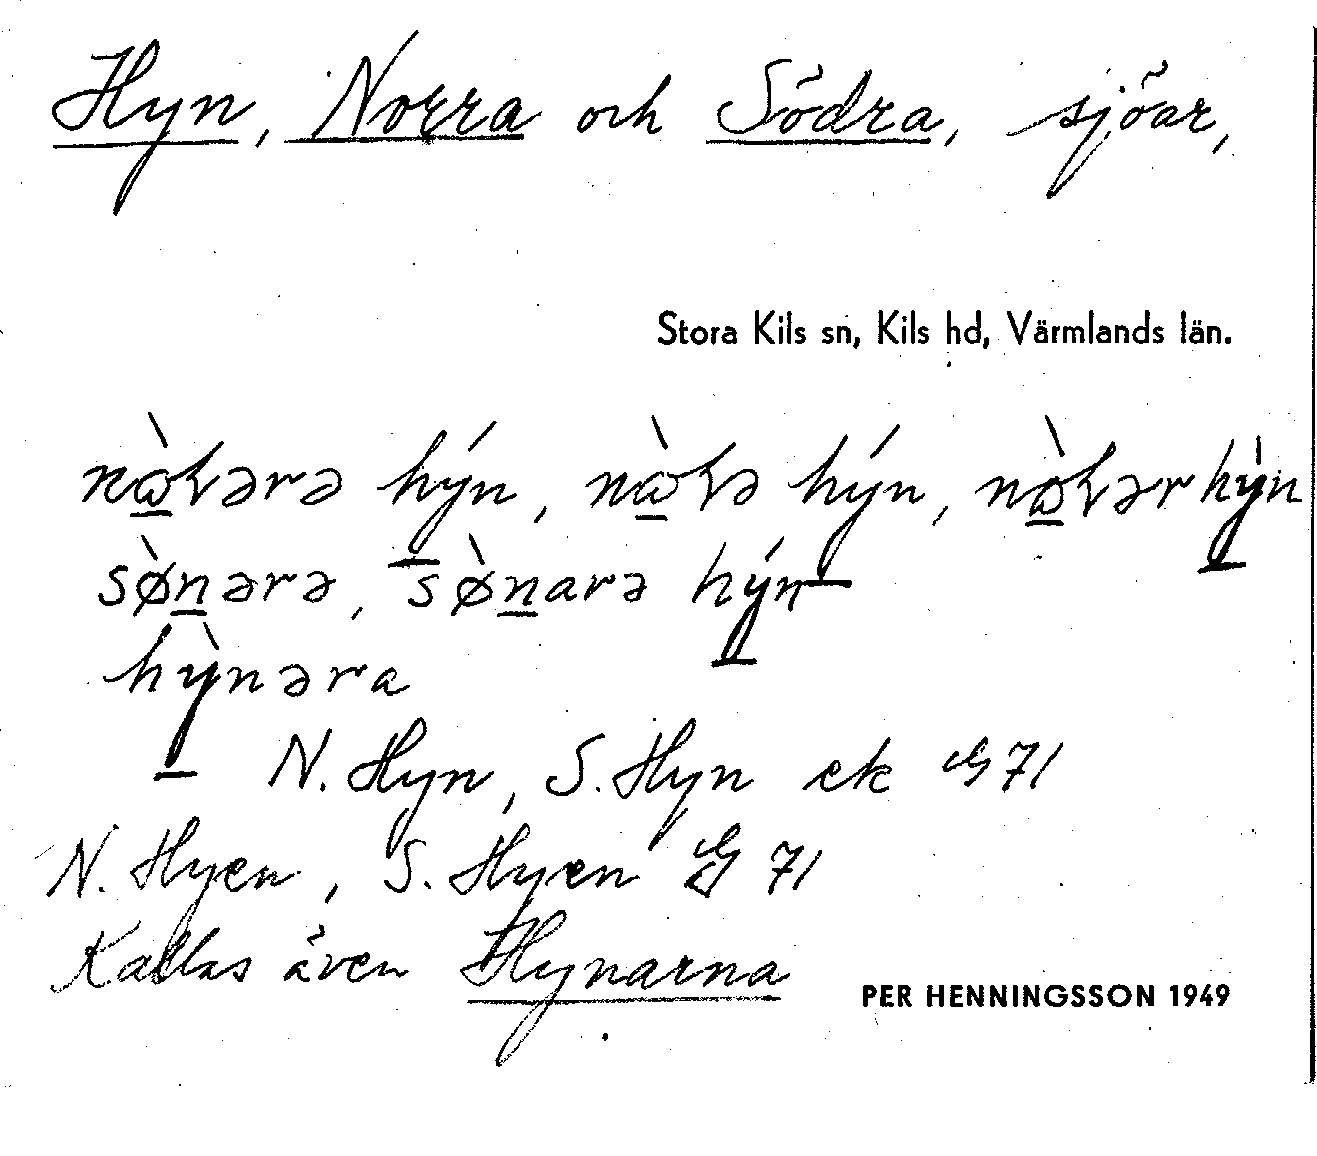 Hyn, Norra och Södra, sjöar,
Stora Kils sn, Kils hd, Värmlands län.
hýn, hýn,
sø̀nərə, sø̀narə hýn
hỳnəra
N. Hyn, S. Hyn ek G 71
N. Hyen, S. Hyen G 71
Kallas även Hynarna
PER HENNINGSSON 1949